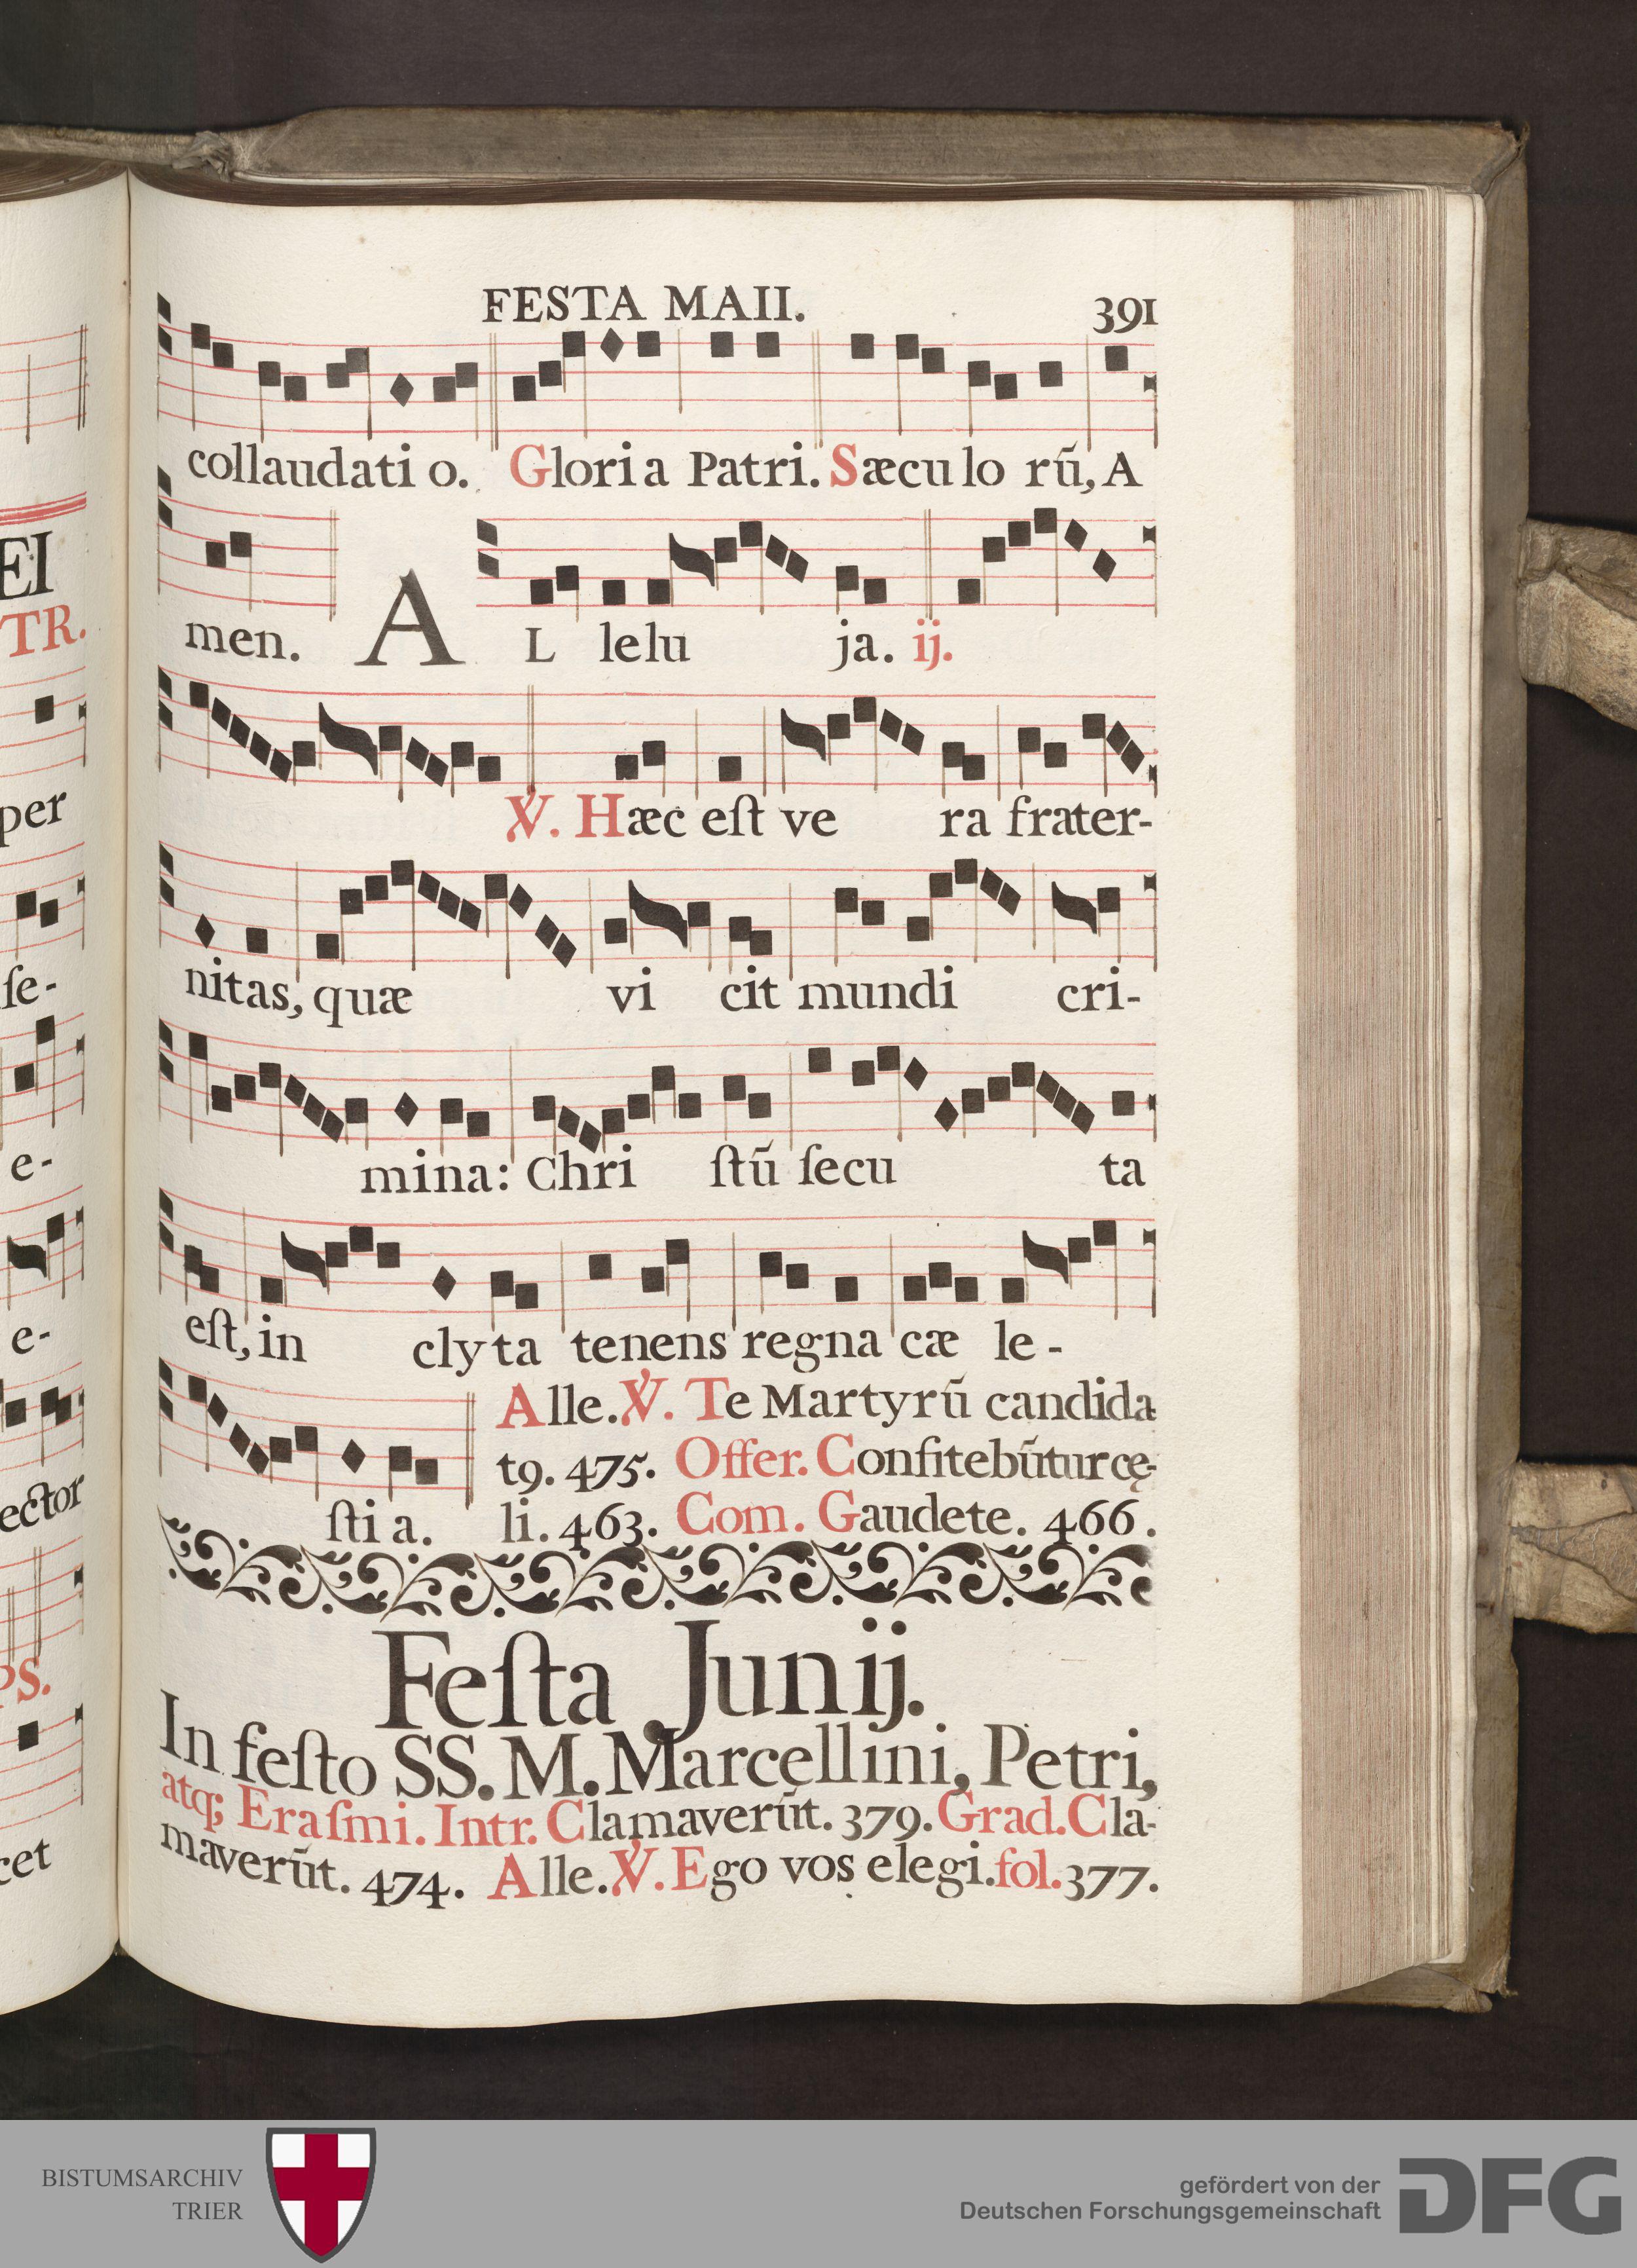 FESTA MAII. 391
collaudati o. Gloria Patri. Sæcu lo rū, A
men. A L lelu ja. ij.
℣. Hæc eſt ve ra frater-
nitas, quæ vi cit mundi cri-
mina: Chri ſtū ſecu ta
eſt, in clyta tenens regna cæ le-
ſti a.
Alle. ℣. Te Martyrū candida
t9. 475. Offer. Confitebūtur cę-
li. 463. Com. Gaudete. 466.
Feſta Junij.
In feſto SS. M. Marcellini, Petri,
atq; Eraſmi. Intr. Clamaverūt. 379. Grad. Cla-
maverūt. 474. Alle. ℣. Ego vos elegi. fol. 377.
EI
TR.
per
ſe-
e-
e-
ector
PS.
cet
BISTUMSARCHIV
TRIER
gefördert von der
Deutschen Forschungsgemeinschaft
DFG